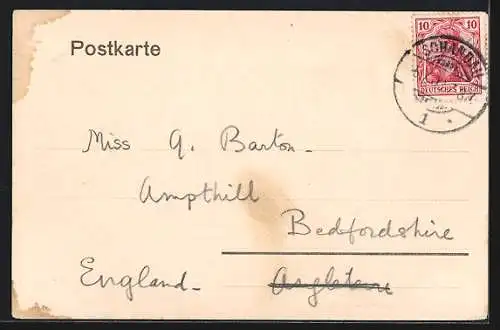 Postkarte
10 10
SCHANDAU
DEUTSCHES REICH
1
Miss G. Barton.
Ampthill
Bedfordshire
England.
Angleterre